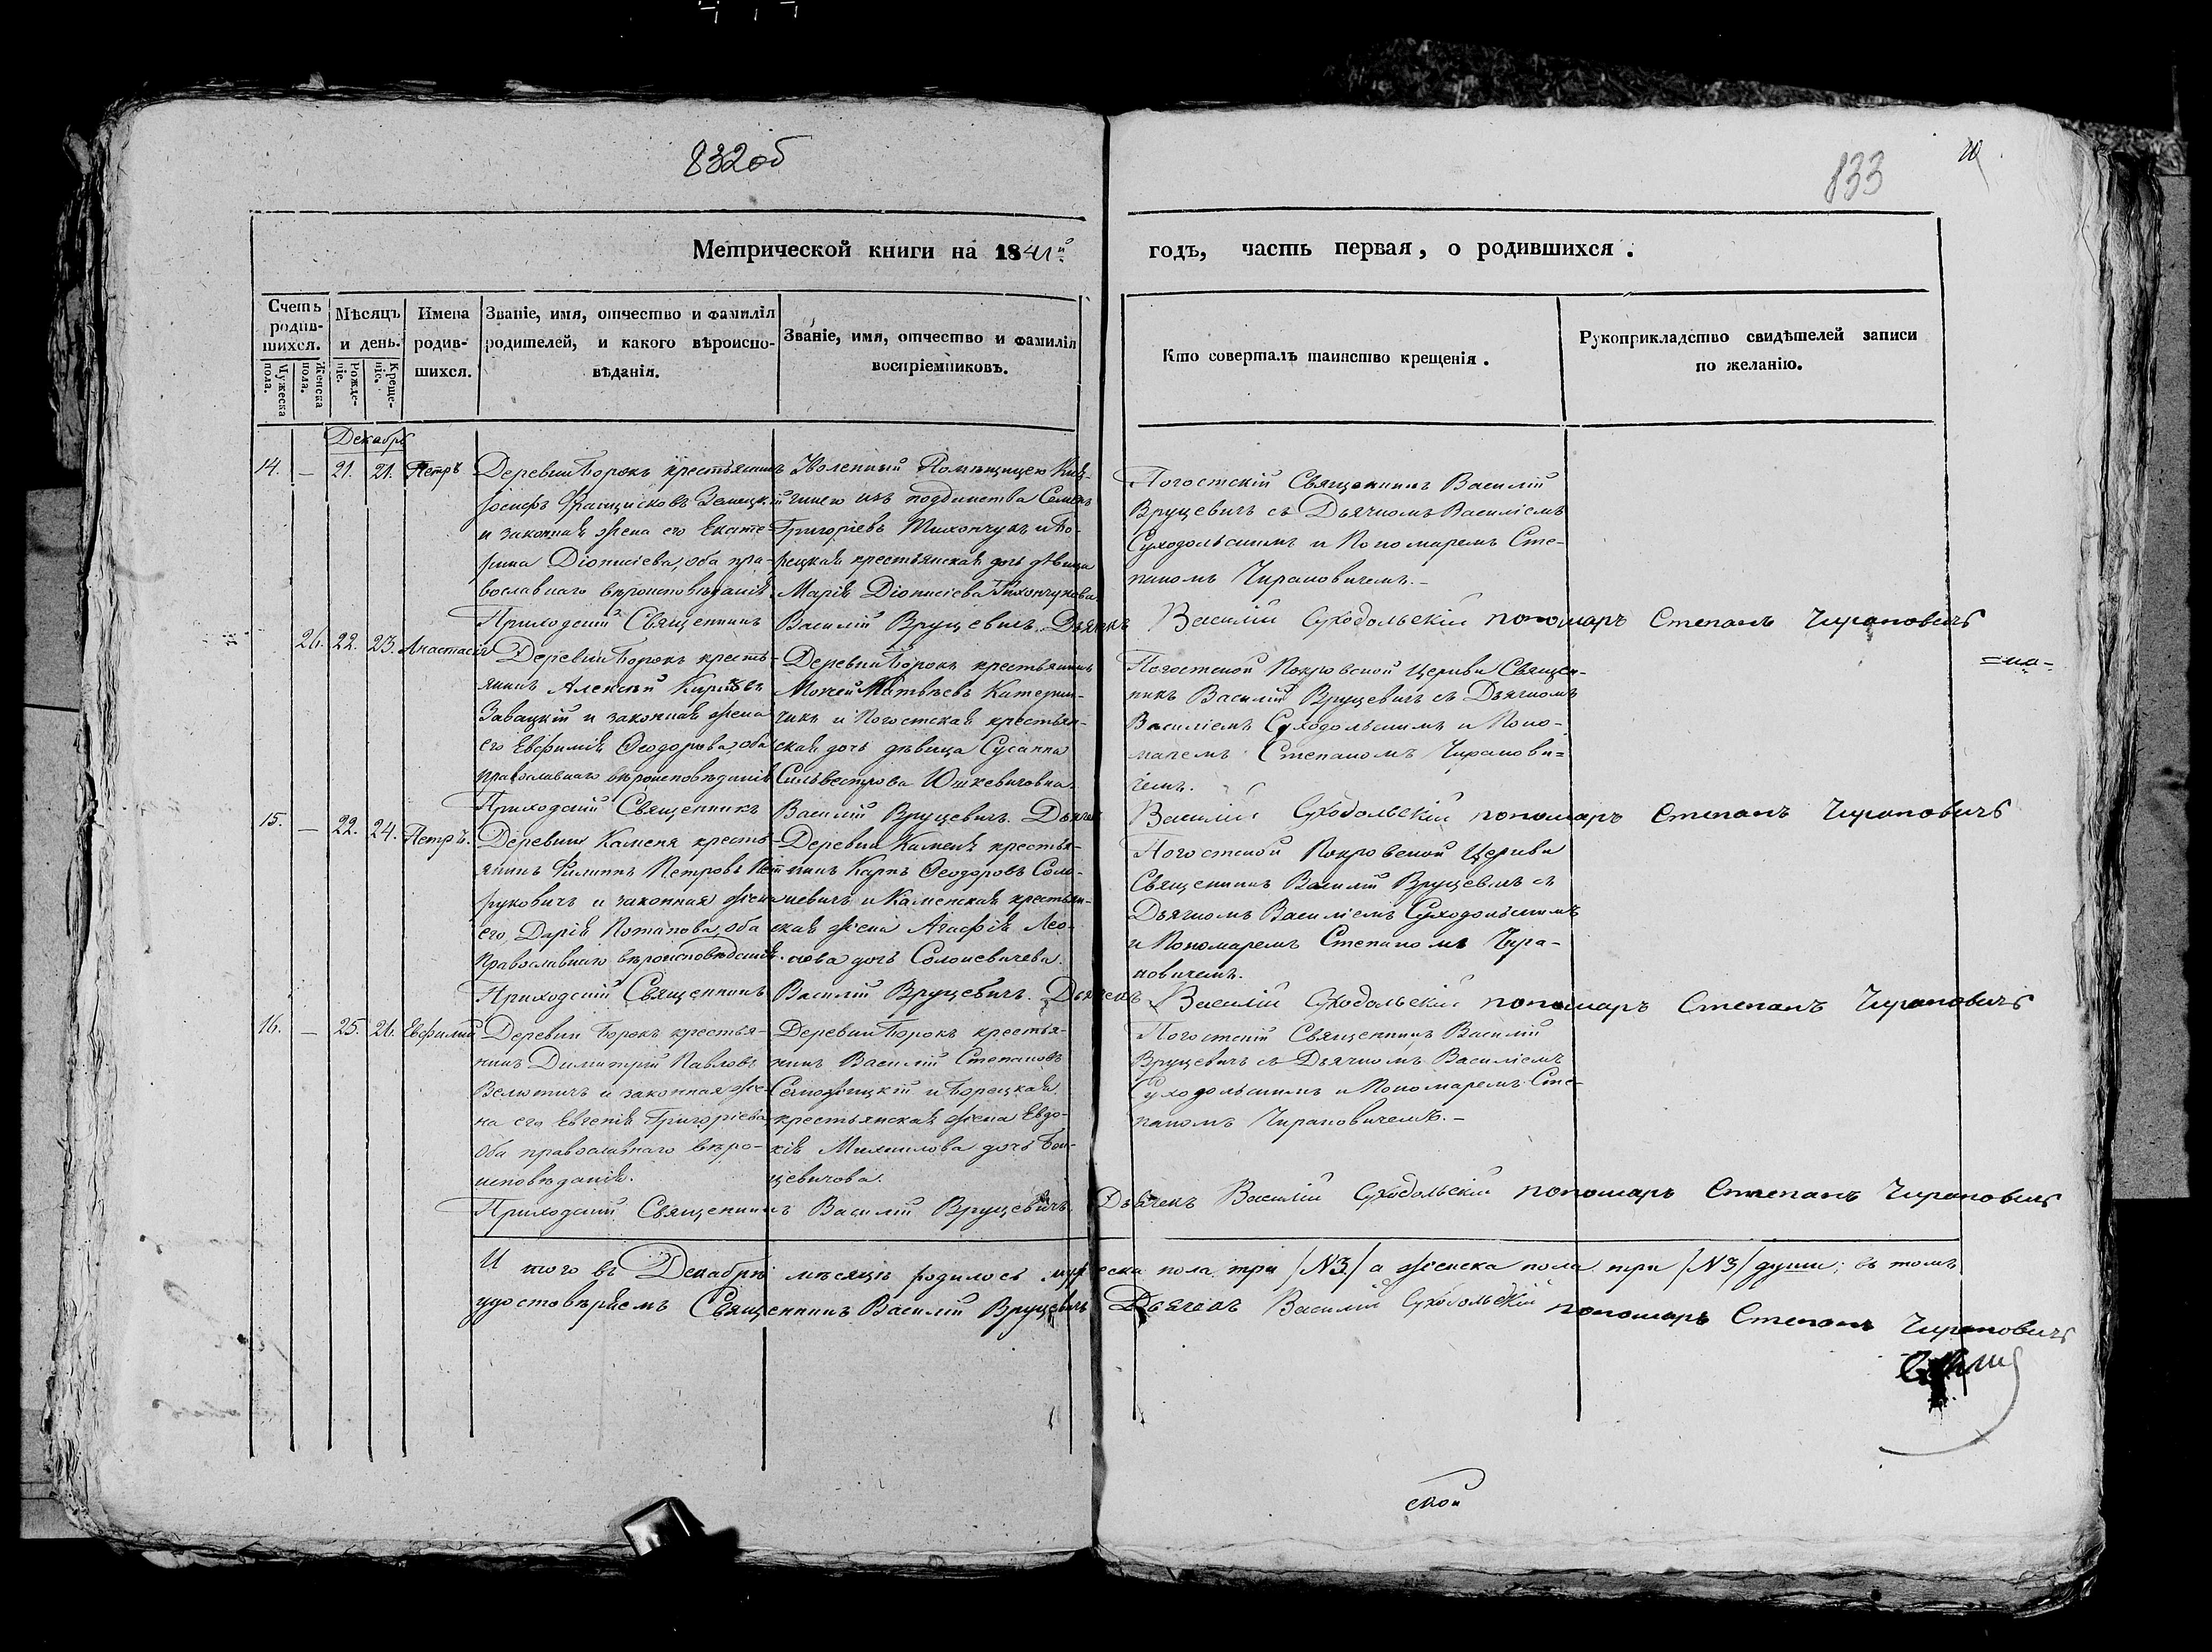 832об
833
Метрической книги на 1841й
годъ, часть первая, о родившихся.
Счетъ родив-шихся.
Мужеска пола.
Женска пола.
Мѣсяцъ и день.
Рожде-ніе.
Креще-ніе.
Имена родив-шихся.
Званіе, имя, отчество и фамилія
родителей, и какого вѣроиспо-
вѣданія.
Званіе, имя, отчество и фамилія
воспріемниковъ.
Кто совершалъ таинство крещенія.
Рукоприкладство свидѣтелей записи
по желанію.
Декабрь
14. — 21. 21. Петръ
Деревни Борокъ крестьянинъ
Іосифъ Францисковъ Земецкій
и законная жена его Екате-
рина Діонисіева, оба пра-
вославнаго вѣроисповѣданія
Уволенный Помѣщицею
изъ подданства Семенъ
Григоріевъ Тихончукъ и Бо-
рецкая крестьянская дочь дѣвица
Марія Діонисіева Тихончукова.
Погостскій Священникъ Василій
Вруцевичъ съ Дьячкомъ Василіемъ
Суходольскимъ и Пономаремъ Сте-
паномъ Чирановичемъ.-
Приходскій Священникъ Василій Вруцевичъ. Дьячекъ Василій Суходольскій пономаръ Степанъ Чирановичъ
26. 22. 23. Анастасія
Деревни Борокъ кресть-
янинъ Алексѣй
Завацкій и законная жена
его Евфимія Ѳеодорова, оба
православнаго вѣроисповѣданія
Деревни Борокъ крестьянинъ
Мокей Матвѣевъ Катерин-
чикъ и Погостская крестьян-
ская дочь дѣвица Сусанна
Сильвестрова Юшкевичовна.
Погостской Покровской Церкви Священ-
никъ Василій Вруцевичъ съ Дьячкомъ
Василіемъ Суходольскимъ и Поно-
маремъ Степаномъ Чиранови=
чемъ.
Приходскій Священникъ Василій Вруцевичъ. Дьячекъ Василій Суходольскій пономаръ Степанъ Чирановичъ
15. — 22. 24. Петръ.
Деревни Каменя кресть-
янинъ Филиппъ Петровъ Пет-
руковичъ и законная жена
его Дарія Потапова, оба
православнаго вѣроисповѣданія.
Деревни Каменя крестья-
нинъ Карпъ Ѳеодоровъ Соло-
невичъ и Каменская крестьян-
ская жена Агафія Лео-
нова дочь Солоневичева.
Погостской Покровской Церкви
Священникъ Василій Вруцевичъ съ
Дьячкомъ Василіемъ Суходольскимъ
и Пономаремъ Степаномъ Чира-
новичемъ.
Приходскій Священникъ Василій Вруцевичъ. Дьячекъ Василій Суходольскій пономаръ Степанъ Чирановичъ
16. — 25. 26. Евфимій
Деревни Борокъ крестья-
нинъ Димитрій Павловъ
Велютичъ и законная же-
на его Евгенія Григоріева
оба православнаго вѣро-
исповѣданія.
Деревни Борокъ крестья-
нинъ Василій Степановъ
и Борецкая
крестьянская жена Евдо-
кія Михаилова дочь Бои-
цевичова.
Погостскій Священникъ Василій
Вруцевичъ съ Дьячкомъ Василіемъ
Суходольскимъ и Пономаремъ Сте-
паномъ Чирановичемъ.-
Приходскій Священникъ Василій Вруцевичъ. Дьячекъ Василій Суходольскій пономаръ Степанъ Чирановичъ
Итого въ Декабрѣ мѣсяцѣ родилось мужеска пола три /N3/ а женска пола три /N3/ души; въ томъ
удостовѣряемъ Священникъ Василій Вруцевичъ Дьячекъ Василій Суходольскій пономаръ Степанъ Чирановичъ
ской